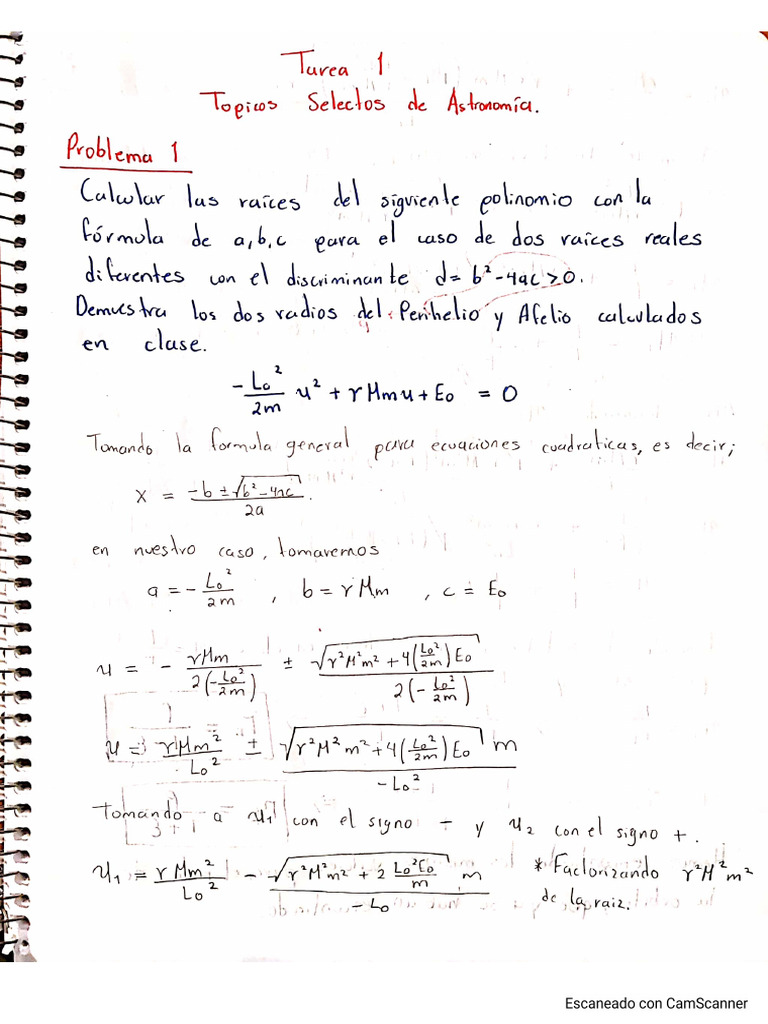 Tarea 1
Topicos Selectos de Astronomía.
Problema 1
Calcular las raíces del siguiente polinomio con la
fórmula de a,b,c para el caso de dos raíces reales
diferentes con el discriminante d= b²-4ac>0.
Demuestra los dos radios del Perihelio y Afelio calculados
en clase.
-L₀²/2m u² + γMmu + E₀ = 0
Tomando la formula general para ecuaciones cuadraticas, es decir;
x = (-b ± √(b²-4ac))/2a.
en nuestro caso, tomaremos
a = -L₀²/2m , b = γMm , c = E₀
u = - γMm/2(-L₀²/2m) ± √(γ²M²m² + 4(L₀²/2m)E₀)/2(-L₀²/2m)
u = γMm²/L₀² ± √(γ²M²m² + 4(L₀²/2m)E₀) m/-L₀²
Tomando a u₁ con el signo - y u₂ con el signo +.
u₁ = γMm²/L₀² - √(γ²M²m² + 2 L₀²E₀/m) m/-L₀ * Factorizando γ²M²m²
de la raiz.
Escaneado con CamScanner